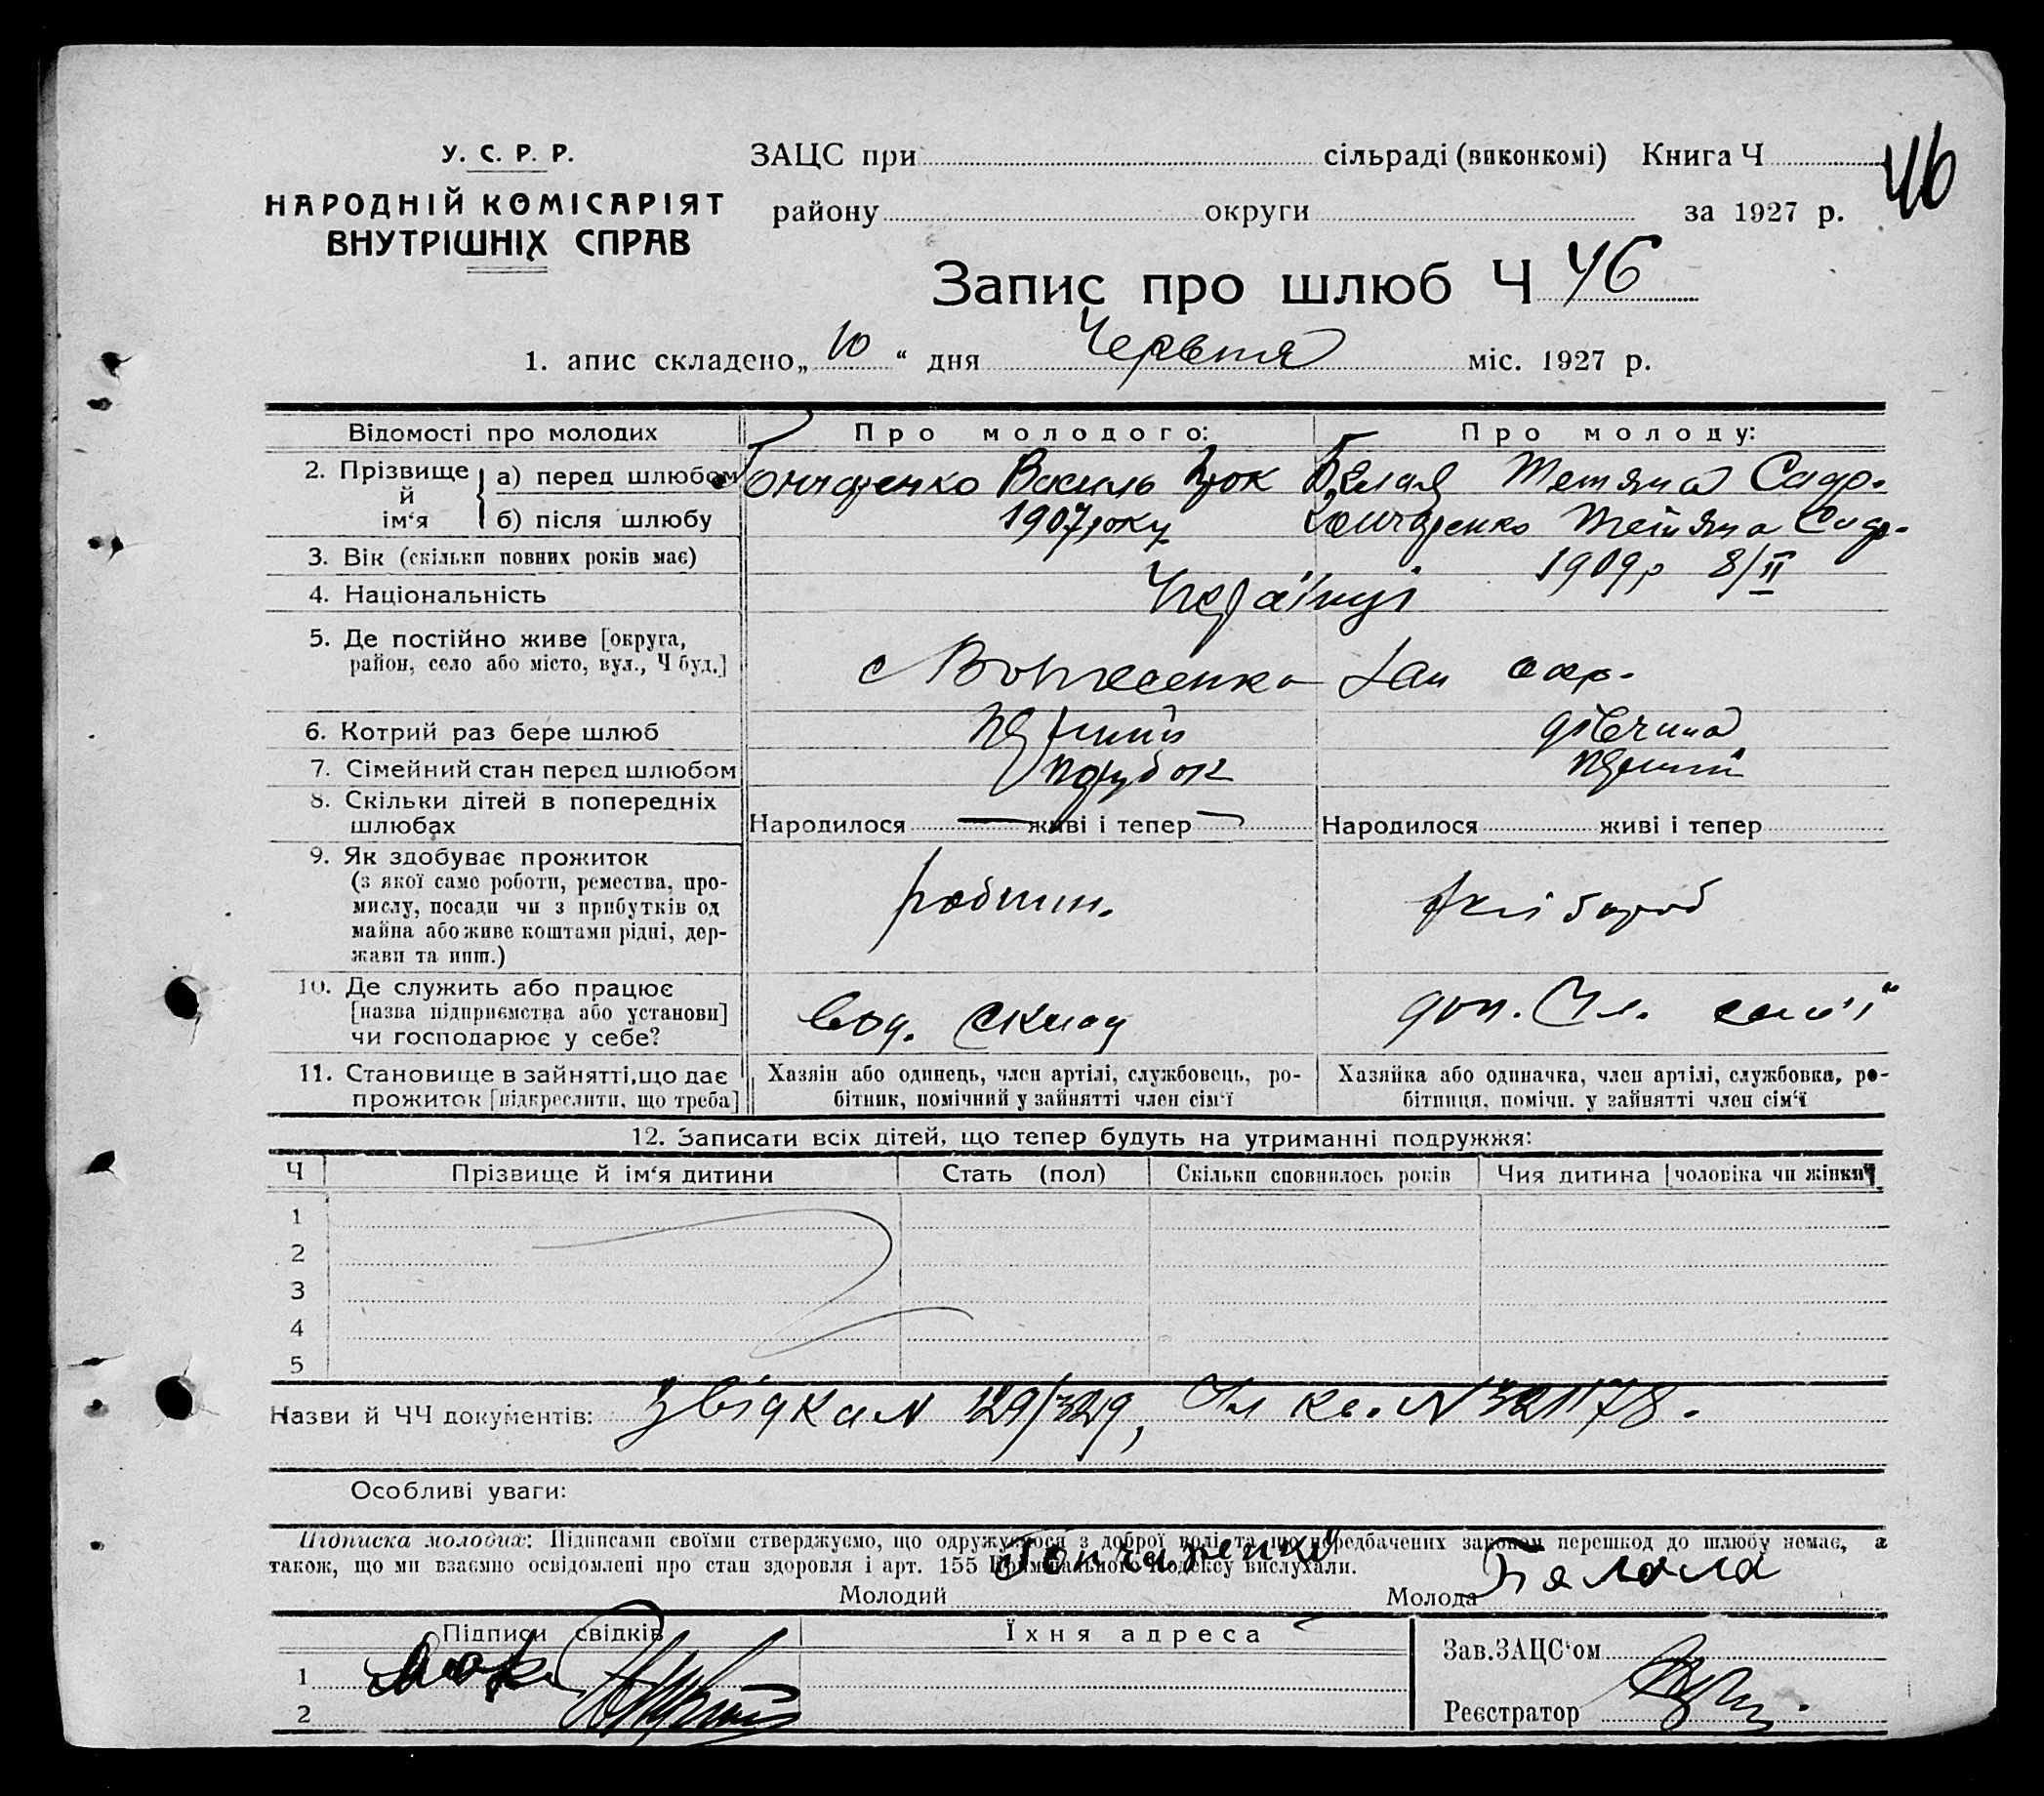 У. С. Р. Р.
НАРОДНІЙ КОМІСАРІЯТ
ВНУТРІШНІХ СПРАВ
ЗАЦС при сільраді (виконкомі) Книга Ч 46
району округи за 1927 р.
Запис про шлюб Ч 46
1. апис складено „ 10 “ дня Червня міс. 1927 р.
Відомості про молодих Про молодого: Про молоду:
2. Прізвище й ім‘я
а) перед шлюбом Гончаренко Василь Белая Тетяна Сидр.
б) після шлюбу Гончаренко Тетяна Сидр.
3. Вік (скільки повних років має) 1907 року 1909 р 8/II
4. Національність Українці
5. Де постійно живе [округа,
район, село або місто, вул., Ч буд.]
с Вознесенка Зап окр.
6. Котрий раз бере шлюб перший дівчина
7. Сімейний стан перед шлюбом парубок перший
8. Скільки дітей в попередніх
шлюбах
Народилося — живі і тепер Народилося живі і тепер
9. Як здобуває прожиток
(з якої само роботи, ремества, про-
мислу, посади чи з прибутків од
майна або живе коштами рідні, дер-
жави та инш.)
робітн. хлібороб
10. Де служить або працює
[назва підприємства або установи]
чи господарює у себе?
склад доп. Чл. сем'ї
11. Становище в зайнятті, що дає
прожиток [підкреслити, що треба]
Хазяін або одинець, член артілі, службовець, ро-
бітник, помічний у зайнятті член сім‘ї
Хазяйка або одиначка, член артілі, службовка, ро-
бітниця, помічн. у зайнятті член сім‘ї
12. Записати всіх дітей, що тепер будуть на утриманні подружжя:
Ч Прізвище й ім‘я дитини Стать (пол) Скільки сповнилось років Чия дитина [чоловіка чи жінки]
1
2
3
4
5
Назви й ЧЧ документів: звідка N 129/329, Чл кв. N 321178.
Особливі уваги:
Підписка молодих: Підписами своїми стверджуємо, що одружуємося з доброї волі та що передбачених законом перешкод до шлюбу немає, а
також, що ми взаємно освідомлені про стан здоровля і арт. 155 Кримінального Кодексу вислухали.
Молодий Гончаренко Молода
Підписи свідків Їхня адреса
1
2
Зав. ЗАЦС‘ом
Реєстратор